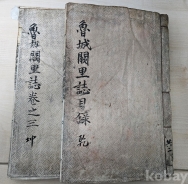 魯城闕里誌目錄 乾
魯城闕里誌卷之三 坤
kobay